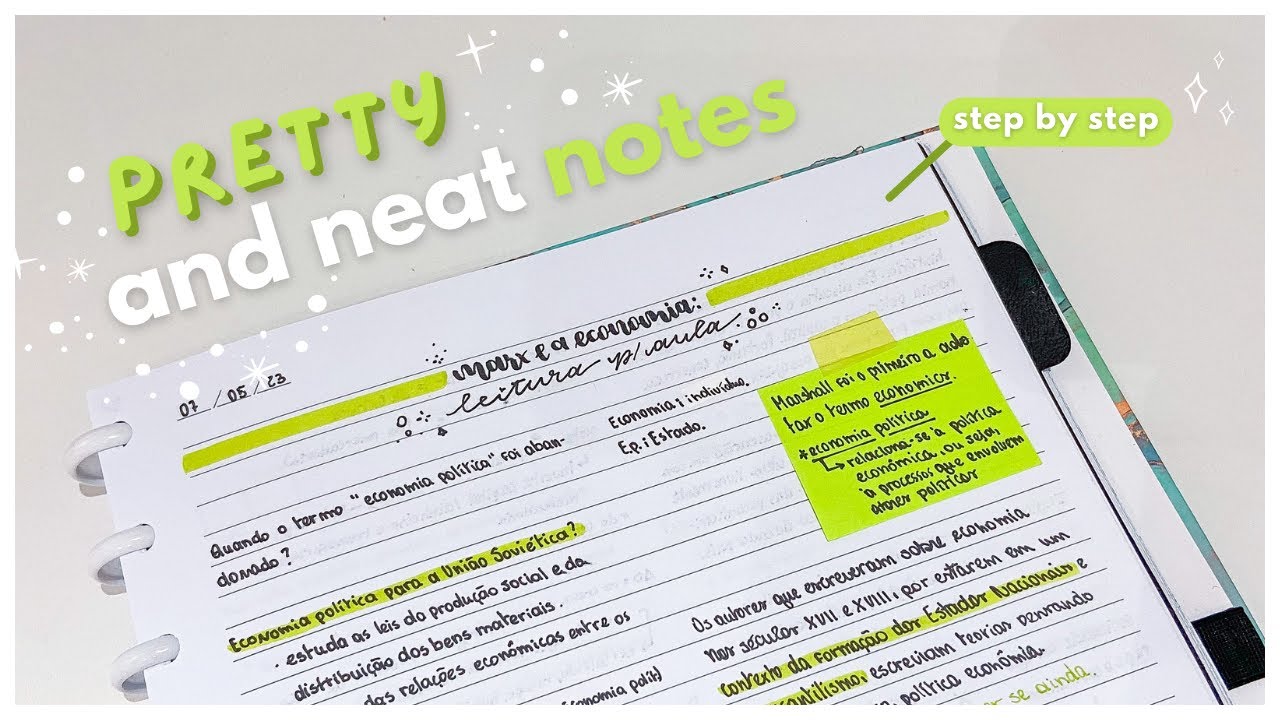 PRETTY
and neat notes
step by step
07 / 05 / 23
marx e a economia:
leitura p/ aula
Quando o termo "economia política" foi aban-
donado?
Economia: indivíduo.
E.p.: Estado.
Economia política para a União Soviética?
· estuda as leis da produção social e da
distribuição dos bens materiais.
das relações econômicas entre os
Marshall foi o primeiro a ado
tar o termo economics.
*economia política
↳ relaciona-se à política
econômica, ou seja,
à processos que envolvem
atores políticos
Os autores que escreveram sobre economia
nos séculos XVII e XVIII, por estarem em um
contexto da formação dos Estados Nacionais e
escreviam teorias pensando
política econômica.
se ainda.